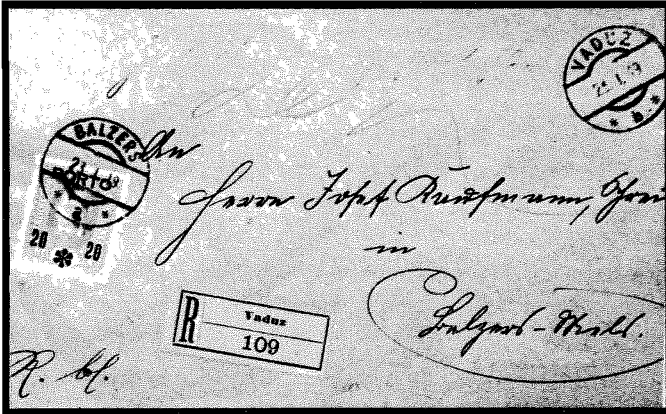 VADUZ
21.1.19
* b *
BALZERS
21.1.19
* a *
PORTO
20 20
An
Herrn Josef Kaufmann,
in
Balzers-Mels.
R Vaduz
109
R. bl.